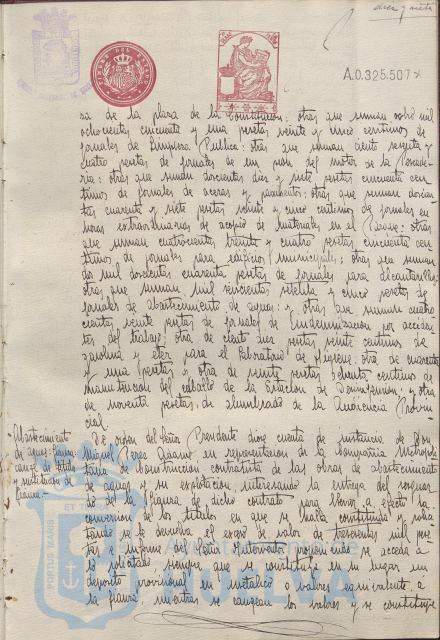 diez y siete
TIMBRE DEL ESTADO
A.0.325.507*
sa de la plaza de la Constitucion: otras que suman ocho mil
ochocientas cincuenta y una pesetas veinte y cinco centimos de
jornales de Limpieza Publica: otras que suman ciento sesenta y
cuatro pesetas de jornales de un peon del motor de la Pescade
ria: otras que suman doscientas diez y siete pesetas cincuenta cen
timos de jornales de aceras y pavimentos: otras que suman doscien
tas cuarenta y siete pesetas veinte y cinco centimos de jornales en
horas extraordinarias de acopio de materiales en el Paseo: otras
que suman cuatrocientas treinta y cuatro pesetas cincuenta cen
timos de jornales para edificios municipales: otras que suman
dos mil doscientas cuarenta pesetas de jornales para alcantarillas:
otras que suman mil seiscientas setenta y cinco pesetas de
jornales de abastecimiento de aguas: y otras que suman cuatro
cientas veinte pesetas de jornales de Indemnizacion por acciden
tes del trabajo: otra de ciento diez pesetas veinte centimos de
gasolina y eter para el laboratorio de Higiene: otra de cuarenta
y una pesetas y otra de veinte pesetas ochenta centimos de
manutencion del caballo de la Estacion de Desinfeccion: y otra
de noventa pesetas, de alumbrado de la Audiencia Provin
cial.
Abastecimiento
de aguas: fianza:
canje de titulos
y sustitucion de
fianza.
De orden del Señor Presidente dióse cuenta de instancia de Don
Miguel Perez en representacion de la Compañia Metropoli
tana de Construccion contratista de las obras de abastecimiento
de aguas y su explotacion, interesando la entrega del resguar
do de la fianza de dicho contrato para llevar a efecto la
conversion de los titulos en que se halla constituida y solici
tando se le devuelva el exceso de valor de trescientas mil pese
tas e informe del Señor Interventor proponiendo se acceda a
lo solicitado, siempre que se constituya en su lugar un
deposito provisional en metalico o valores equivalente a
la fianza, mientras se canjean los valores y se constituye
PORTUS MARIS
ET TERRAE
HUELVA